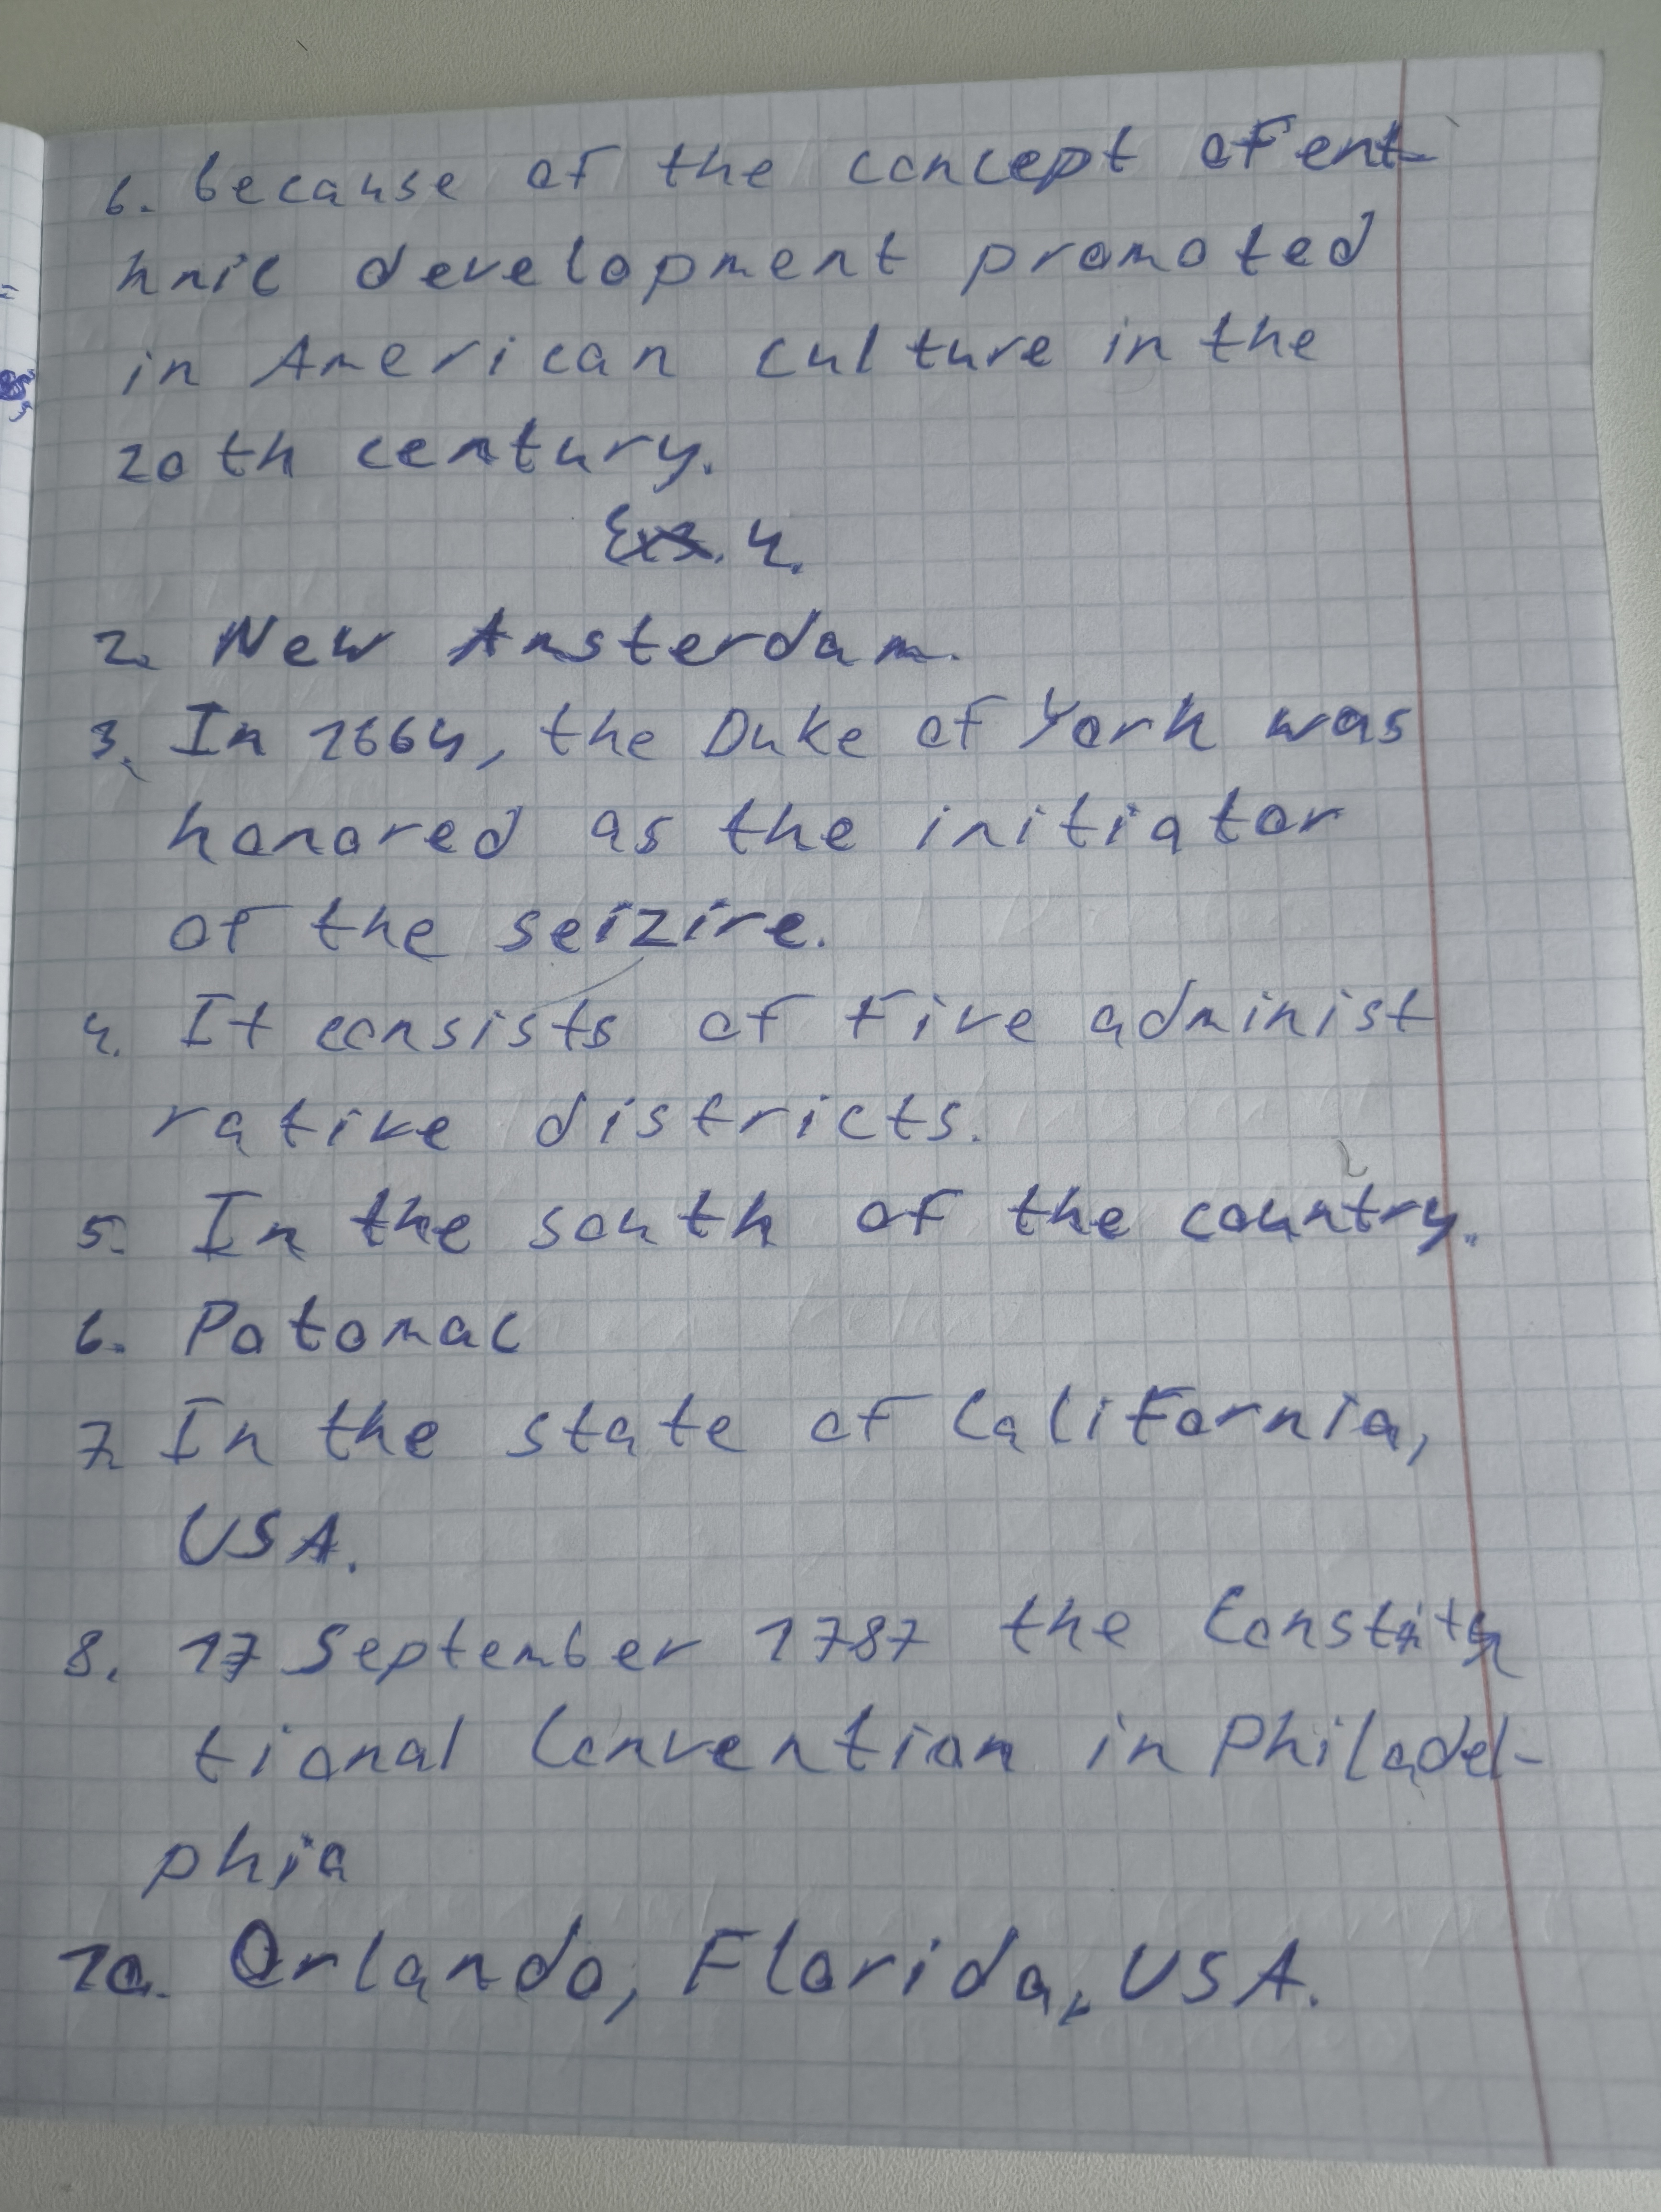 6. because of the concept of ent-
hnic development promoted
in American culture in the
20th century.
Ex. 4.
2. New Amsterdam.
3. In 1664, the Duke of York was
honored as the initiator
of the seizire.
4. It consists of five administ
rative districts.
5. In the south of the country.
6. Potomac
7. In the state of California,
USA.
8. 17 September 1787 the Constitu
tional Convention in Philadel-
phia
10. Orlando, Florida, USA.